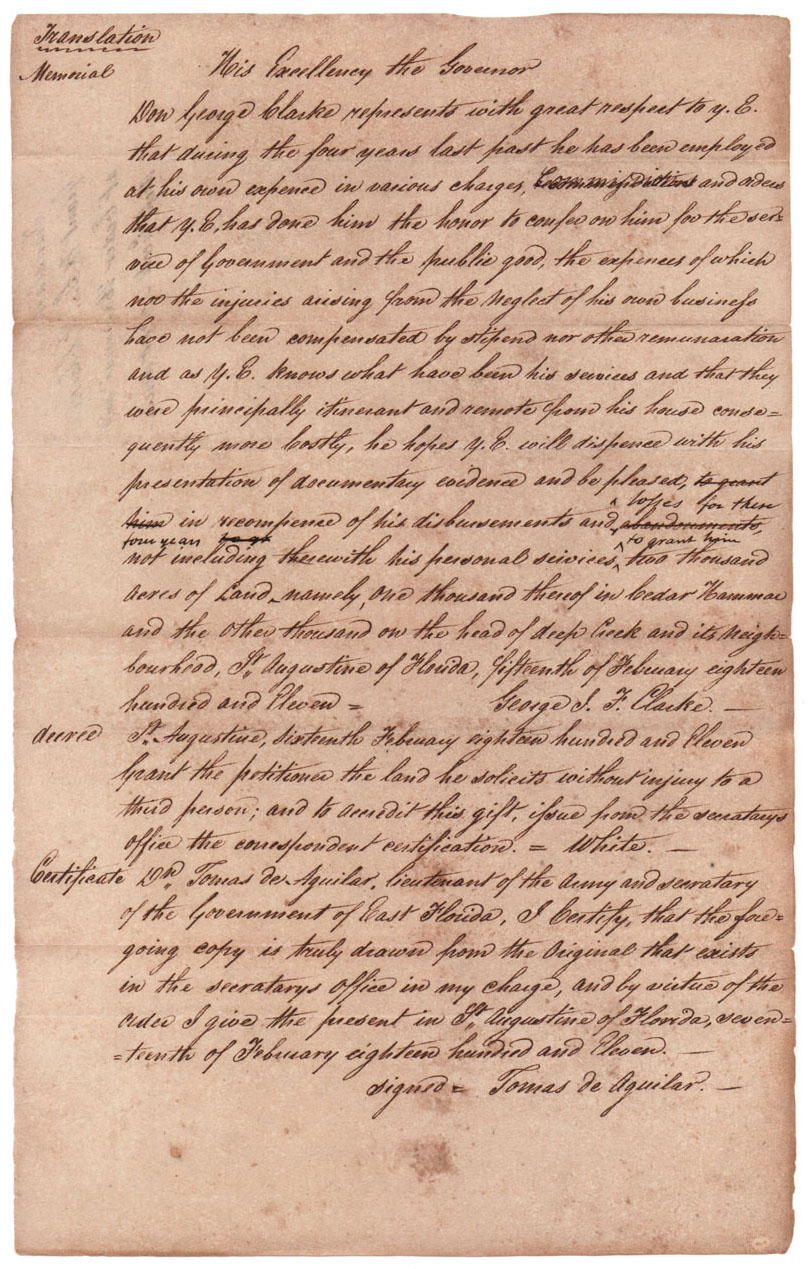 Translation
Memorial His Excellency the Governor
Don George Clarke represents with great respect to y. E.
that during the four years last past he has been employed
at his own expence in various charges, Commissions and orders
that y. E. has done him the honor to confer on him for the ser=
vice of Government and the public good, the expences of which
nor the injuries arising from the neglect of his own business
have not been compensated by stipend nor other remunaration
and as y. E. knows what have been his services and that they
were principally itinerant and remote from his house conse=
quently more Costly, he hopes y. E. will dispence with his
presentation of documentary evidence and be pleased, to grant
losses for these
him in recompense of his disbursements and abandonments,
four years to gt to grant him
not including therewith his personal services, two thousand
acres of Land, namely, One thousand thereof in Cedar Hammac
and the Other thousand on the head of deep Creek and its Neigh=
bourhead, St. Augustine of Florida, fifteenth of February eighteen
hundred and Eleven = George I. F. Clarke. —
decree St. Augustine, sixteenth February eighteen hundred and Eleven
Grant the petitioner the land he solicits without injury to a
third person; and to accredit this gift, issue from the secratarys
office the correspondent certification. = White. —
Certificate Dn. Tomas de Aguilar, lieutenant of the Army and secratary
of the Government of East Florida, I Certify, that the fore=
going copy is truly drawn from the Original that exists
in the secratarys office in my charge, and by virtue of the
order I give the present in St. Augustine of Florida, seven=
=teenth of February eighteen hundred and Eleven. —
signed = Tomas de Aguilar. —